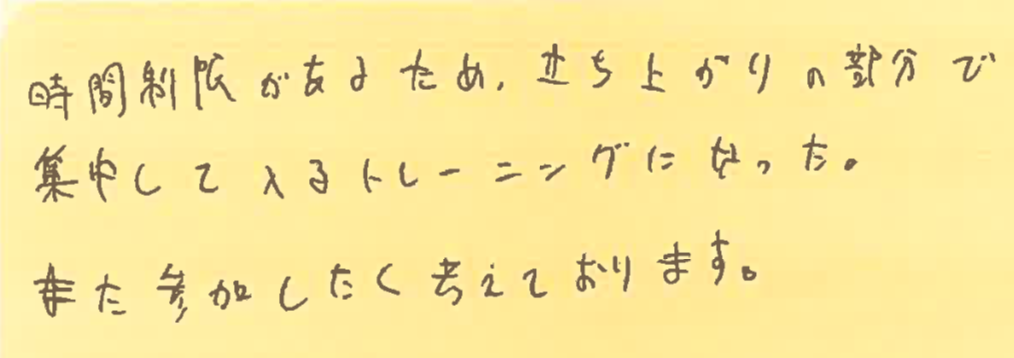 時間制限があるため、立ち上がりの部分で
集中して入るトレーニングになった。
また参加したく考えております。